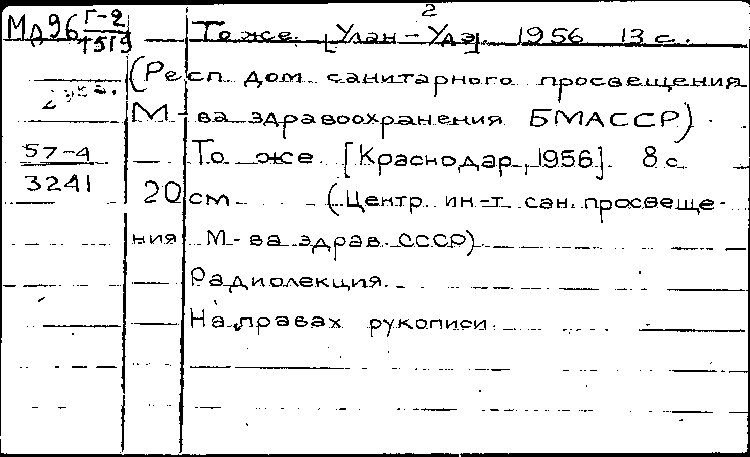 Мд96 Г-2/1519 То же. [Улан-Удэ]. 1956 13 с.
2
2 экз. (Респ дом санитарного просвещения
М-ва здравоохранения БМАССР).
57-4 То же. [Краснодар, 1956]. 8 с
3241 20 см (Центр. ин-т сан. просвеще-
ния М-ва здрав. СССР)
Радиолекция.
На правах рукописи.